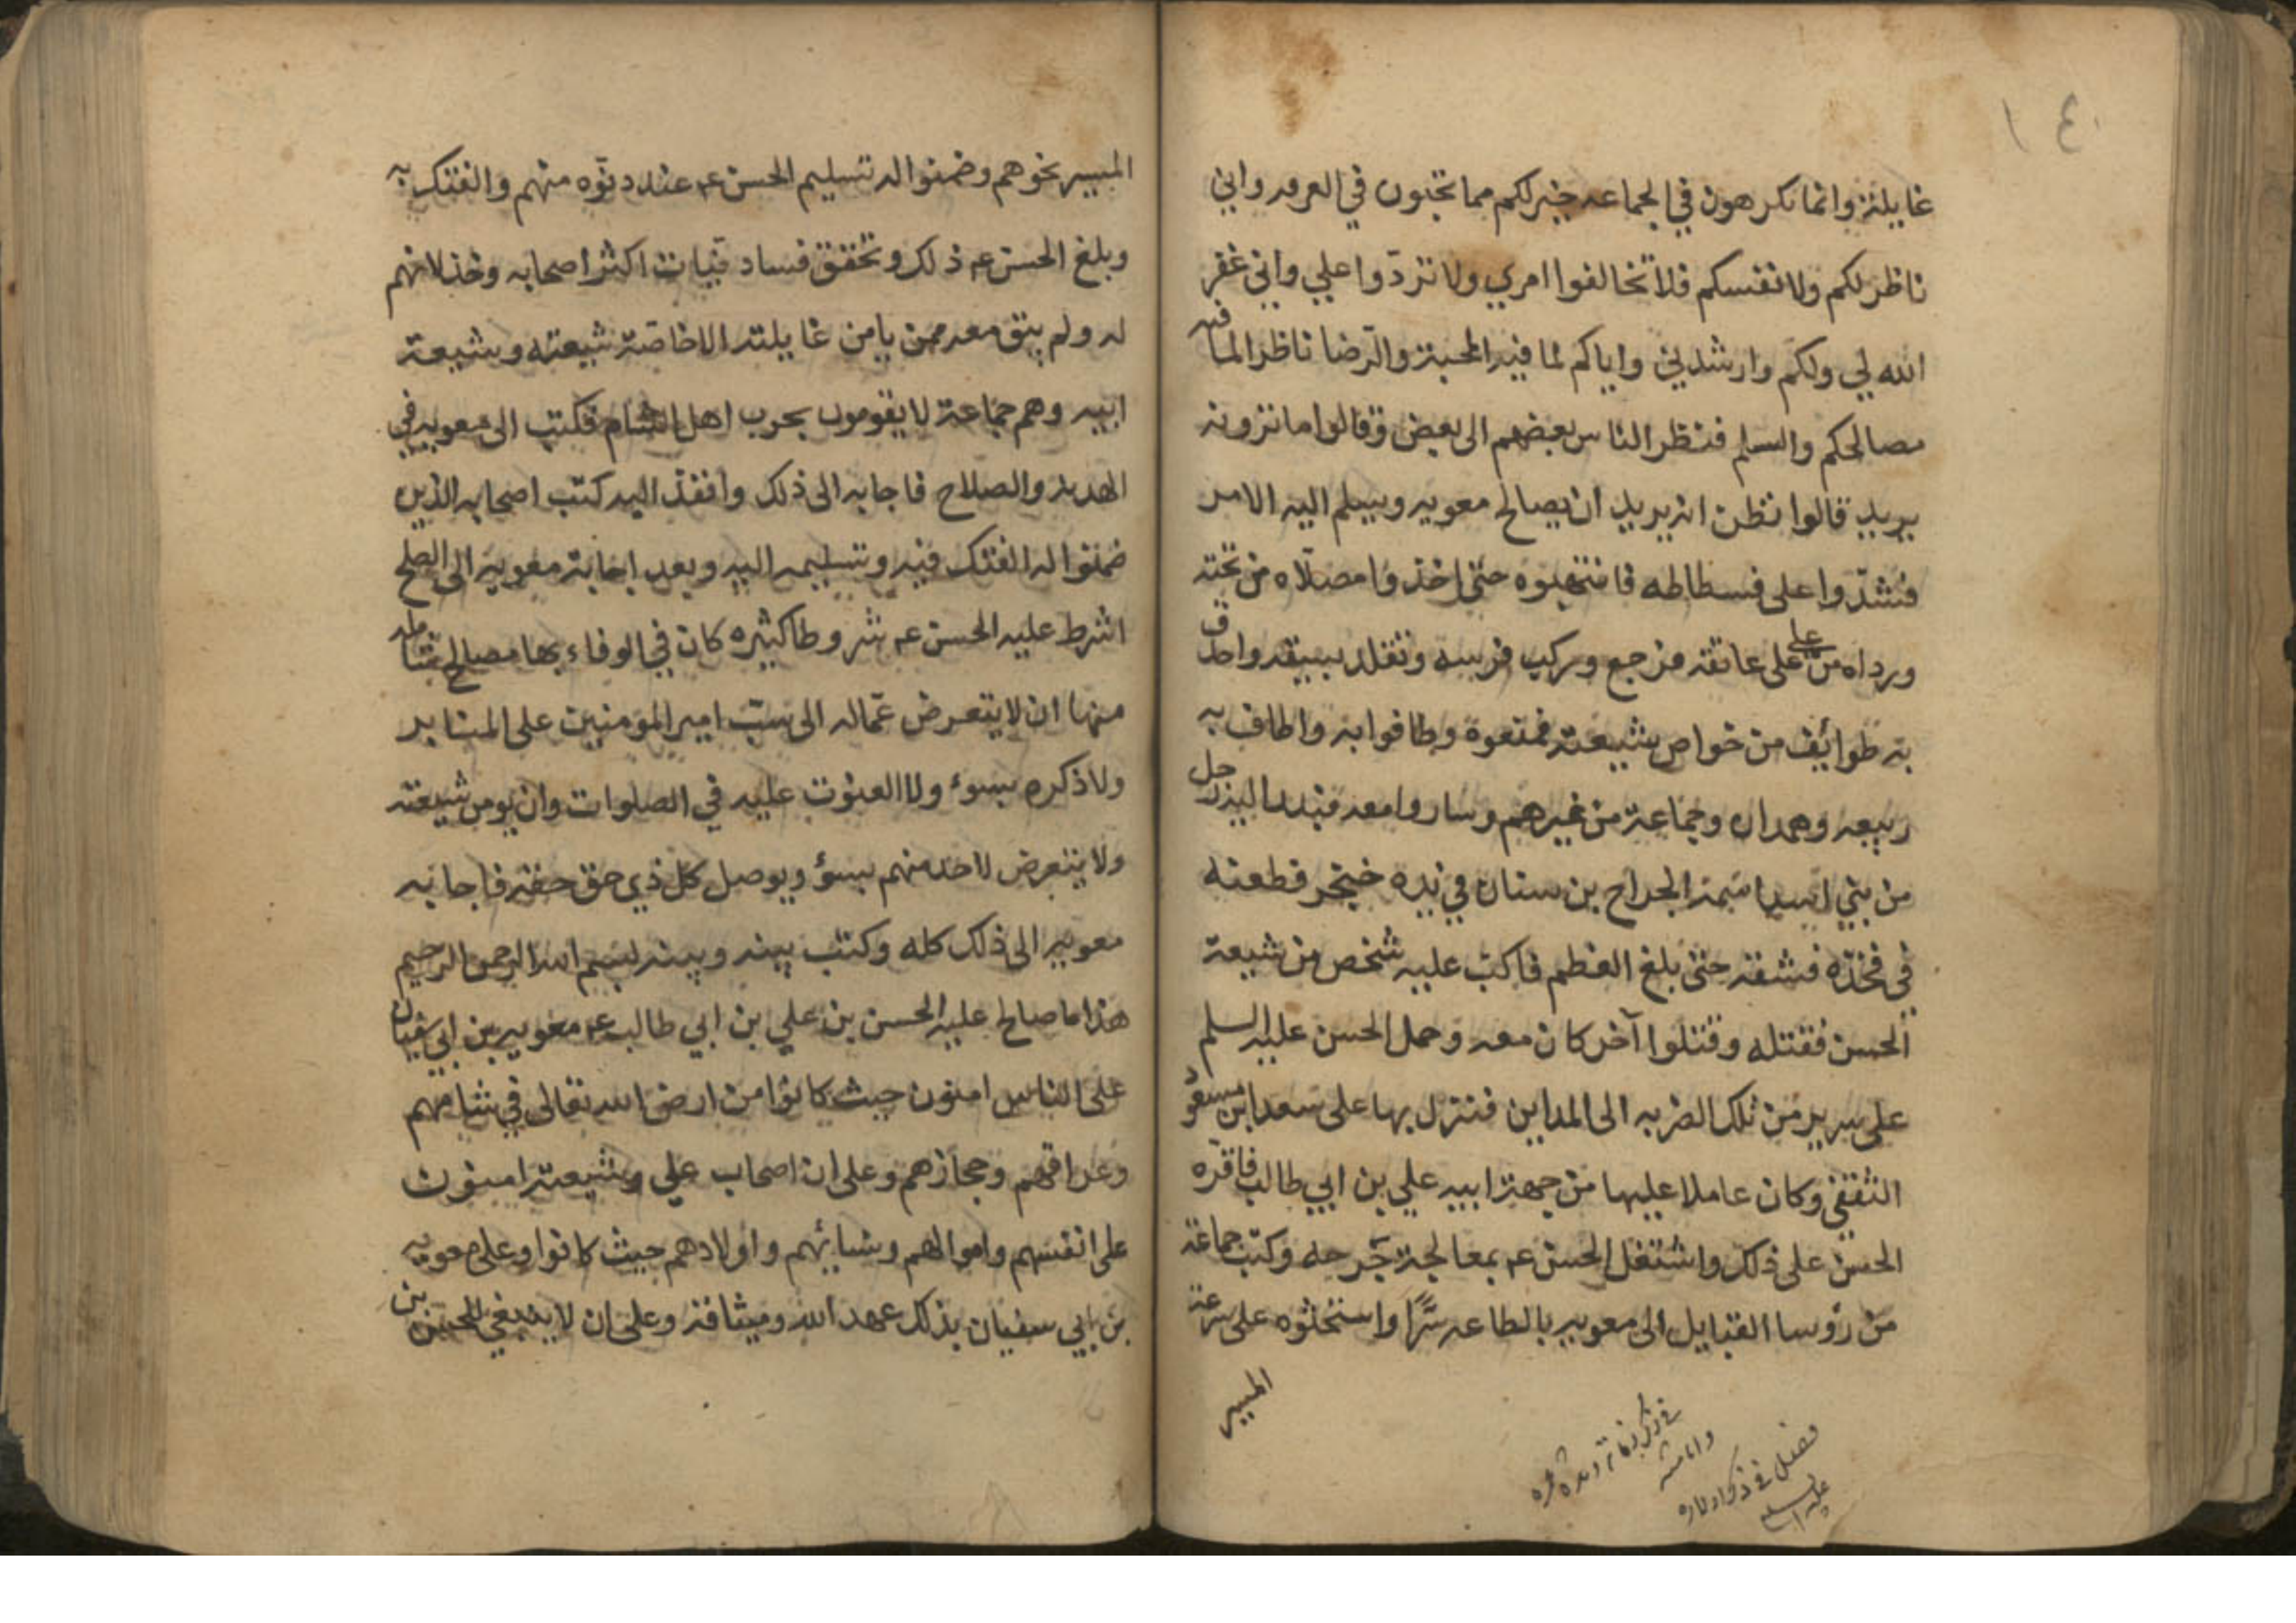 ١٤٠
غايلة وانما تكرهون في الجماعه خير لكم مما تحبون في الفرقه واني
ناظر لكم ولانفسكم فلا تخالفوا امري ولا تردوا علي واني غفر
الله لي ولكم وارشدني واياكم لما فيه المحبة والرضا ناظر لما فيه
مصالحكم والسلم فنظر الناس بعضهم الى بعض وقالوا ما ترونه
يريد قالوا نظن انه يريد ان يصالح معويه ويسلم اليه الامر
فشدوا على فسطاطه فانتهبوه حتى اخذوا مصلاه من تحته
ورداه من على عاتقه فرجع وركب فرسه وتقلد بسيفه واحدق
به طوائف من خواص شيعته فمنعوه وطافوا به واطاف به
ربيعه وهمدان وجماعة من غيرهم وساروا معه فبدر اليه رجل
من بني اسد اسمه الجراح بن سنان في يده خنجر فطعنه
في فخذه فشقه حتى بلغ العظم فاكب عليه شخص من شيعة
الحسن فقتله وقتلوا آخر كان معه وحمل الحسن عليه السلم
على سرير من تلك الضربه الى المداين فنزل بها على سعد ابن مسعود
الثقفي وكان عاملا عليها من جهة ابيه علي بن ابي طالب فاقره
الحسن على ذلك واشتغل الحسن عم بمعالجة جرحه وكتب جماعة
من رؤسا القبايل الى معويه بالطاعه سرًا واستحثوه على سرعة
المسير
فصل في ذكر اولاده
عليه السلم
المسير نحوهم وضمنوا له تسليم الحسن عم عند دنوه منهم والفتك به
وبلغ الحسن عم ذلك وتحقق فساد نيات اكثر اصحابه وخذلانهم
له ولم يبق معه ممن يامن غايلته الا خاصة شيعته وشيعة
ابيه وهم جماعة لا يقومون بحرب اهل الشام فكتب الى معويه في
الهدنة والصلاح فاجابه الى ذلك وانفذ اليه كتب اصحابه الذين
ضمنوا له الفتك فيه وتسليمه اليه وبعد اجابة معويه الى الصلح
اشرط عليه الحسن عم شروطا كثيره كان في الوفاء بها مصالح شامله
منها ان لا يتعرض عماله الى سب امير المومنين على المنابر
ولا ذكره بسوء ولا القنوت عليه في الصلوات وان يومن شيعته
ولا يتعرض لاحد منهم بسؤ ويوصل كل ذي حق حقه فاجابه
معويه الى ذلك كله وكتب بينه وبينه بسم الله الرحمن الرحيم
هذا ما صالح عليه الحسن بن علي بن ابي طالب عم معويه بن ابي سفيان
على الناس امنون حيث كانوا من ارض الله تعالى في شامهم
وعراقهم وحجازهم وعلى ان اصحاب علي وشيعته امنون
على انفسهم واموالهم ونسائهم واولادهم حيث كانوا وعلى معويه
بن ابي سفيان بذلك عهد الله وميثاقه وعلى ان لا يبغي للحسن بن